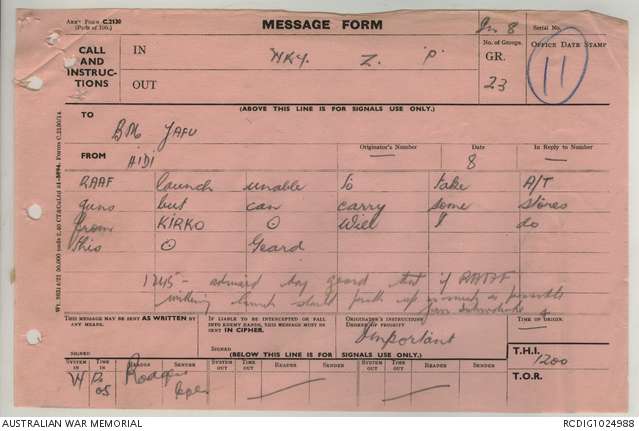 ARMY FORM C.2130
(Pads of 100.)
MESSAGE FORM
In 8
Serial No.
CALL AND INSTRUCTIONS
IN
NKY. Z. P
No. of Groups.
GR.
23
OFFICE DATE STAMP
11
OUT
(ABOVE THIS LINE IS FOR SIGNALS USE ONLY.)
TO
BM YAFU
FROM
AIDI
Originator's Number
Date
8
In Reply to Number
RAAF launch unable to take A/T
guns but can carry some stores
from KIRKO ⊙ Will I do
this ⊙ Geard
1245 - advised geard that if RAAF
willing launch should pick up as much as possible
from
THIS MESSAGE MAY BE SENT AS WRITTEN BY ANY MEANS.
SIGNED
IF LIABLE TO BE INTERCEPTED OR FALL INTO ENEMY HANDS, THIS MESSAGE MUST BE SENT IN CIPHER.
SIGNED
ORIGINATOR'S INSTRUCTIONS.
DEGREE OF PRIORITY
Important
TIME OF ORIGIN.
(BELOW THIS LINE IS FOR SIGNALS USE ONLY.)
T.H.I.
1200
T.O.R.
SYSTEM IN
TIME IN
READER
SENDER
SYSTEM OUT
TIME OUT
READER
SENDER
SYSTEM OUT
TIME OUT
READER
SENDER
Rodgers
AUSTRALIAN WAR MEMORIAL
RCDIG1024988